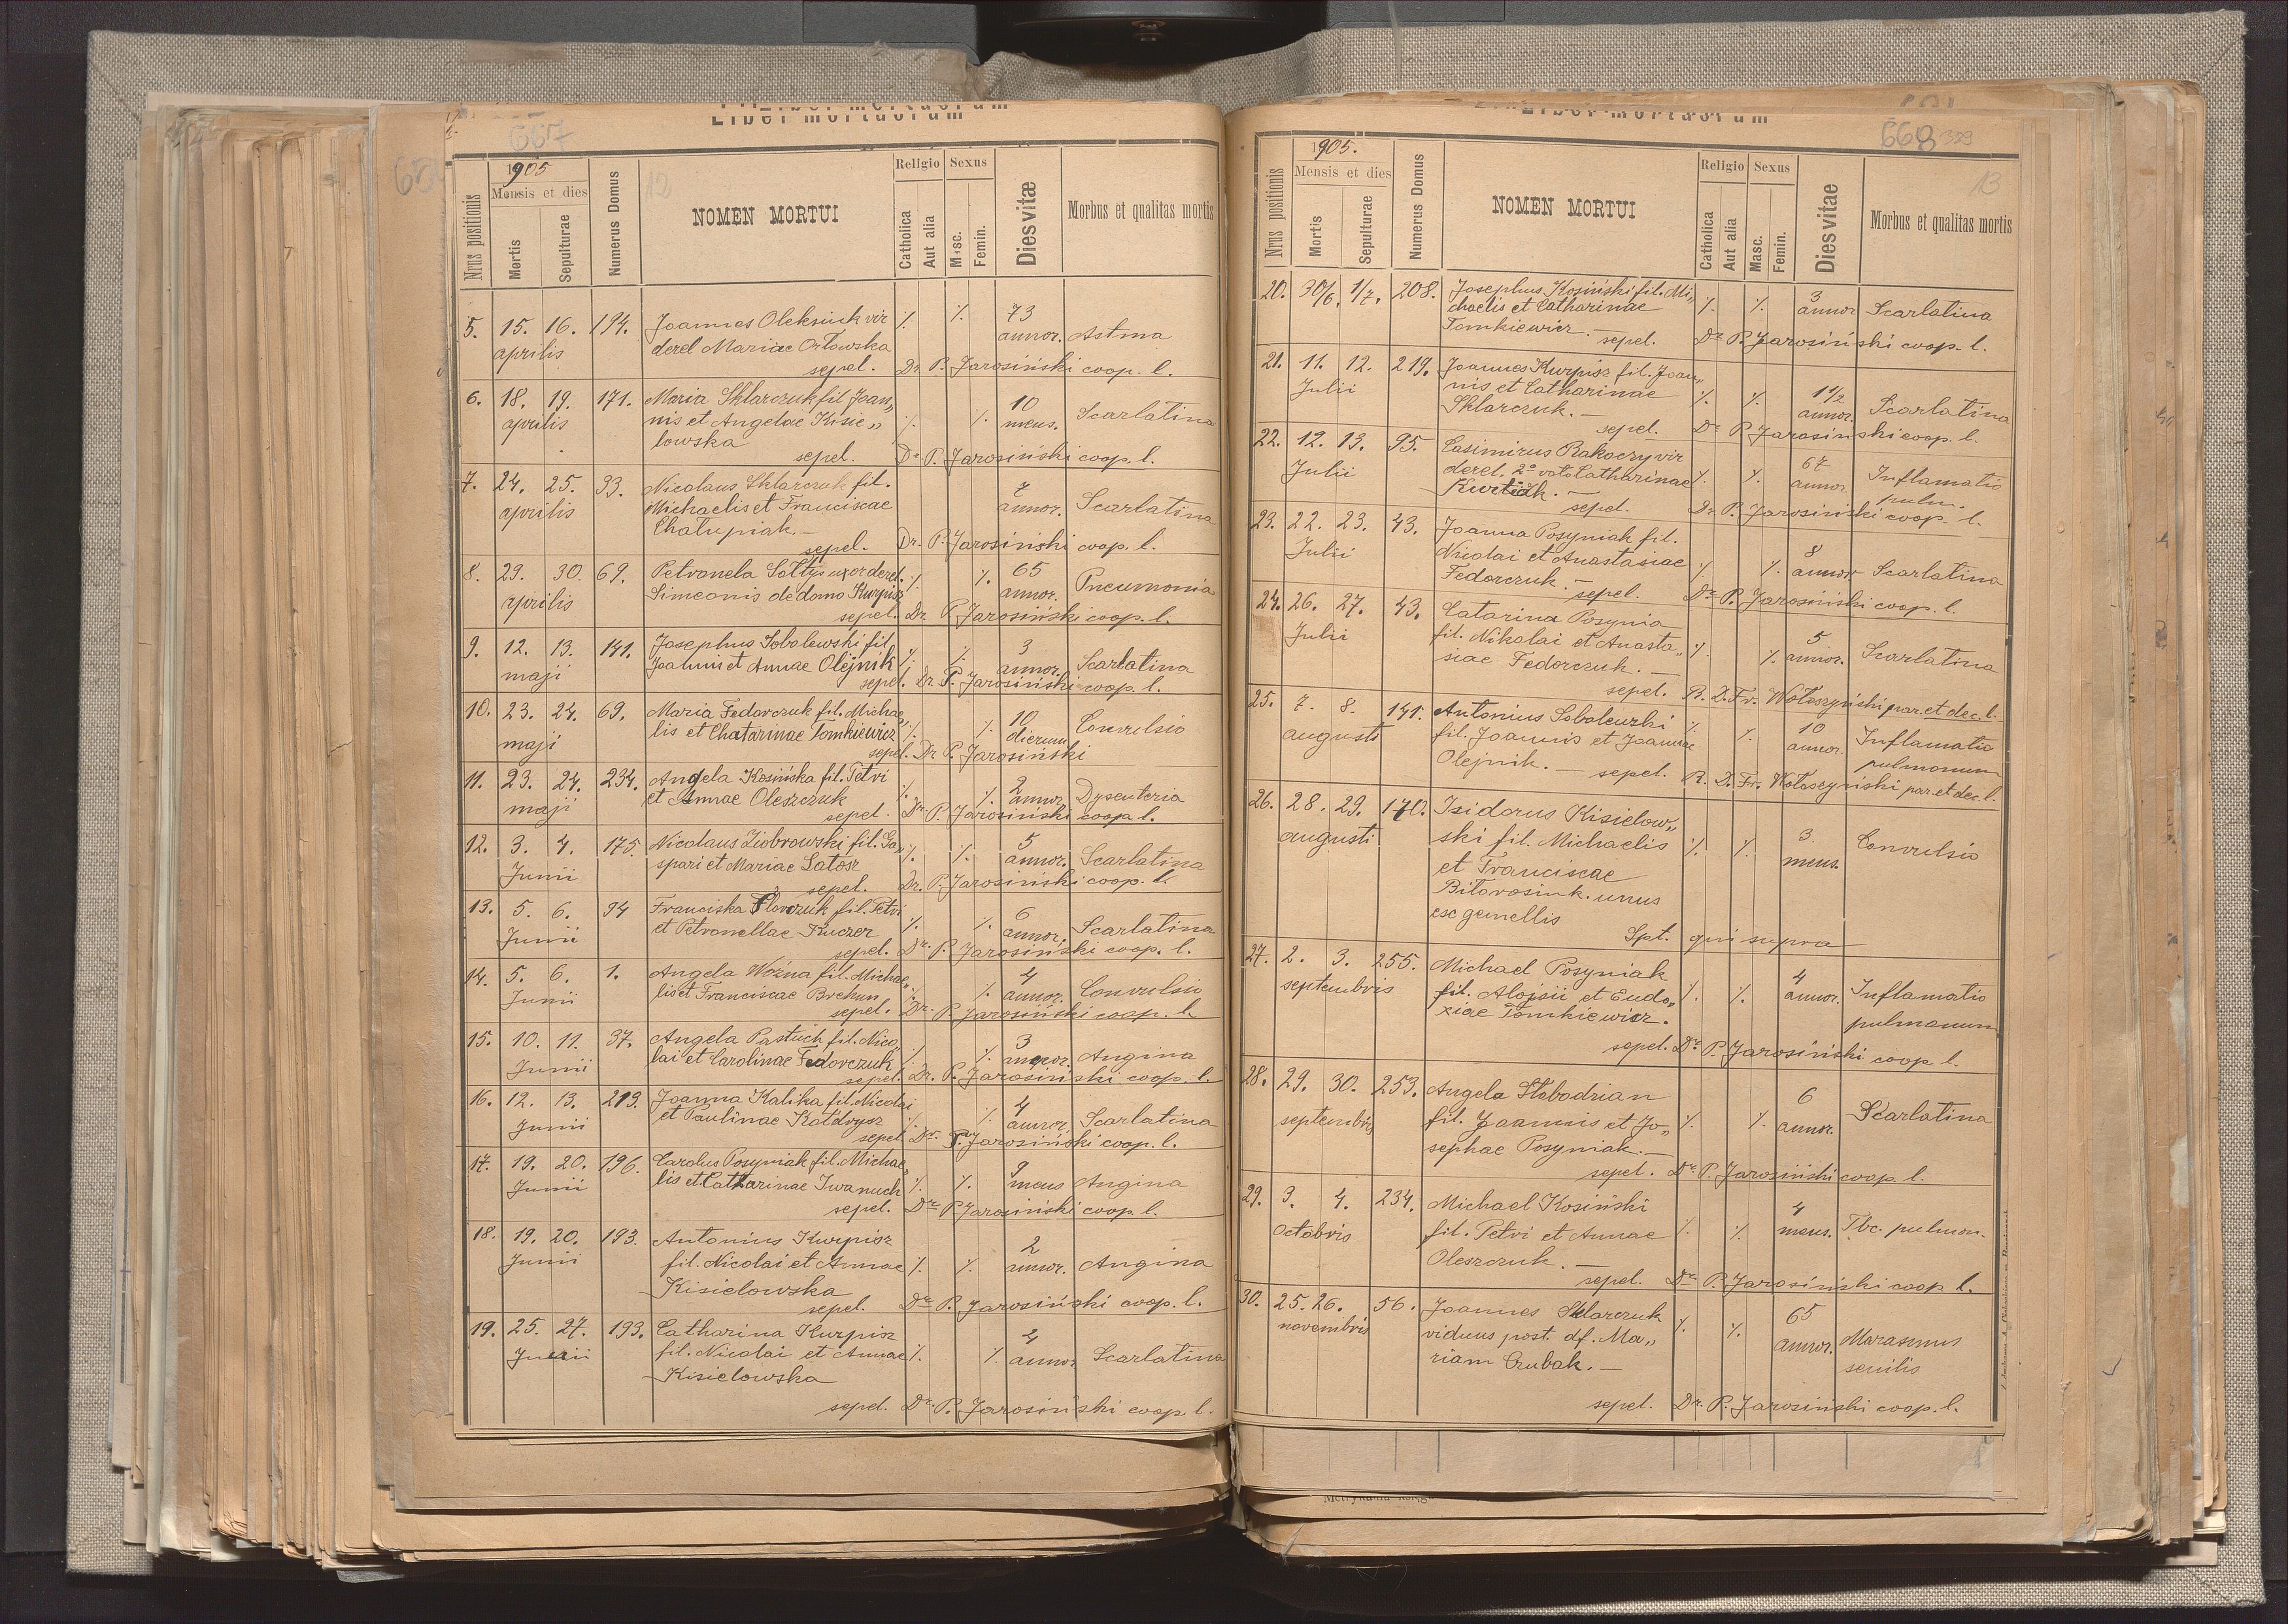 Liber mortuorum
667
12
1905
Nrus positionis
Mensis et dies
Mortis
Sepulturae
Numerus Domus
NOMEN MORTUI
Religio
Catholica
Aut alia
Sexus
Masc.
Femin.
Dies vitæ
Morbus et qualitas mortis
5. 15. 16. 194. Joannes Oleksiuk vir % % 73
aprilis derel Mariae Orłowska annor. Astma
sepel. Dr. P. Jarosiński coop. l.
6. 18. 19. 171. Maria Sklarczuk fil. Joan„ 10
aprilis nis et Angelae Kisie„ % % mens. Scarlatina
lowska
sepel. Dr. P. Jarosiński coop. l.
7. 24. 25. 93. Nicolaus Sklarczuk fil. 7
aprilis Michaelis et Franciscae annor. Scarlatina
Chałupiak.—
sepel. Dr. P. Jarosiński coop. l.
8. 29. 30. 69. Petronela Sołtys uxor derel. % % 65
aprilis Simeonis de domo Kurpisz annor. Pneumonia
sepel. Dr. P. Jarosiński coop. l.
9. 12. 13. 141. Josephus Sobolewski fil. % % 3
maji Joannis et Annae Olejnik annor. Scarlatina
sepel. Dr. P. Jarosiński coop. l.
10. 23. 24. 69. Maria Fedorczuk fil. Michae„ % 10 Convulsio
maji lis et Chatarinae Tomkiewicz % dierum
sepel. Dr P. Jarosiński
11. 23. 24. 234. Angela Kosińska fil. Petri % 2
maji et Annae Oleszczuk % annor. Dysenteria
sepel. Dr. P. Jarosiński coop. l.
12. 3. 4. 175. Nicolaus Ziobrowski fil. Ga„ % % 5
Junii spari et Mariae Łatosz annor. Scarlatina
sepel. Dr. P. Jarosiński coop. l.
13. 5. 6. 94 Franciska fil. Petri % % 6
Junii et Petronellae Kuczer annor. Scarlatina
sepel. Dr. P. Jarosiński coop. l.
14. 5. 6. 1. Angela Woźna fil. Michae„ 4
Junii lis et Franciscae Brehun % % annor. Convulsio
sepel. Dr. P. Jarosiński coop. l.
15. 10. 11. 37. Angela Pastuch fil. Nico„ 3
Junii lai et Carolinae Fedorczuk % % annor. Angina
sepel. Dr. P. Jarosiński coop. l.
16. 12. 13. 213. Joanna Kalika fil. Nicolai 4
Junii et Paulinae % % annor. Scarlatina
sepel. Dr. P. Jarosiński coop. l.
17. 19. 20. 196. Carolus Posyniak fil. Michae„ 9
Junii lis et Catharinae Iwanuch % % mens Angina
sepel. Dr P. Jarosiński coop. l.
18. 19. 20. 193. Antonius Kurpisz 2
Junii fil. Nicolai et Annae % % annor. Angina
Kisielowska
sepel. Dr P. Jarosiński coop. l.
19. 25. 27. 193. Catharina Kurpisz 4
Junii fil. Nicolai et Annae % % annor. Scarlatina
Kisielowska
sepel. Dr. P. Jarosiński coop. l.
Liber mortuorum
668 329
13
1905.
Nrus positionis
Mensis et dies
Mortis
Sepulturae
Numerus Domus
NOMEN MORTUI
Religio
Catholica
Aut alia
Sexus
Masc.
Femin.
Dies vitae
Morbus et qualitas mortis
20. 30/6. 1/7. 208. Josephus Kosiński fil. Mi„ 3
chaelis et Catharinae % % annor Scarlatina
Tomkiewicz.—
sepel. Dr P. Jarosiński coop. l.
21. 11. 12. 219. Joannes Kurpisz fil. Joan„ 1 1/2
Julii nis et Catharinae % % annor. Scarlatina
Sklarczuk.—
sepel. Dr P. Jarosiński coop. l.
22. 12. 13. 95. Casimirus Rakoczy vir 67 Inflamatio
Julii derel. 2º voto Catharinae % % annor. pulm.
sepel. Dr. P. Jarosiński coop. l.
23. 22. 23. 43. Joanna Posyniak fil. 8
Julii Nicolai et Anastasiae % % annor Scarlatina
Fedorczuk.—
sepel. Dr P. Jarosiński coop. l.
24. 26. 27. 43. Catarina Posynia 5
Julii fil. Nikolai et Anasta„ % % annor. Scarlatina
siae Fedorczuk.—
sepel. R. D. Fr. Wołoszyński par. et dec. l.
25. 7. 8. 141. Antonius Sobolewski % 10 Inflamatio
augusti fil. Joannis et Joannae % annor. pulmonum
Olejnik.— sepel. R. D. Fr. Wołoszyński par. et dec. l.
26. 28. 29. 170. Isidorus Kisielow„ 3.
augusti ski fil. Michaelis % % mens. Convulsio
et Franciscae
Bitorosiuk. unus
ex gemellis
Spt. qui supra
27. 2. 3. 255. Michael Posyniak 4
septembris fil. Alojsii et Eudo„ % % annor. Inflamatio
xiae Tomkiewicz. pulmonum
sepel. Dr P. Jarosiński coop l.
28. 29. 30. 253. Angela Słobodzian 6
septembris fil. Joannis et Jo„ % % annor. Scarlatina
sephae Posyniak.—
sepel. Dr P. Jarosiński coop. l.
29. 3. 4. 234. Michael Kosiński 4
octobris fil. Petri et Annae % % mens. Tbc. pulmon.
Oleszczuk.—
sepel. Dr P. Jarosiński coop l.
30. 25. 26. 56. Joannes Sklarczuk 65
novembris viduus post. df. Ma„ % % annor. Marasmus
riam Czubak.— senilis
sepel. Dr. P. Jarosiński coop. l.